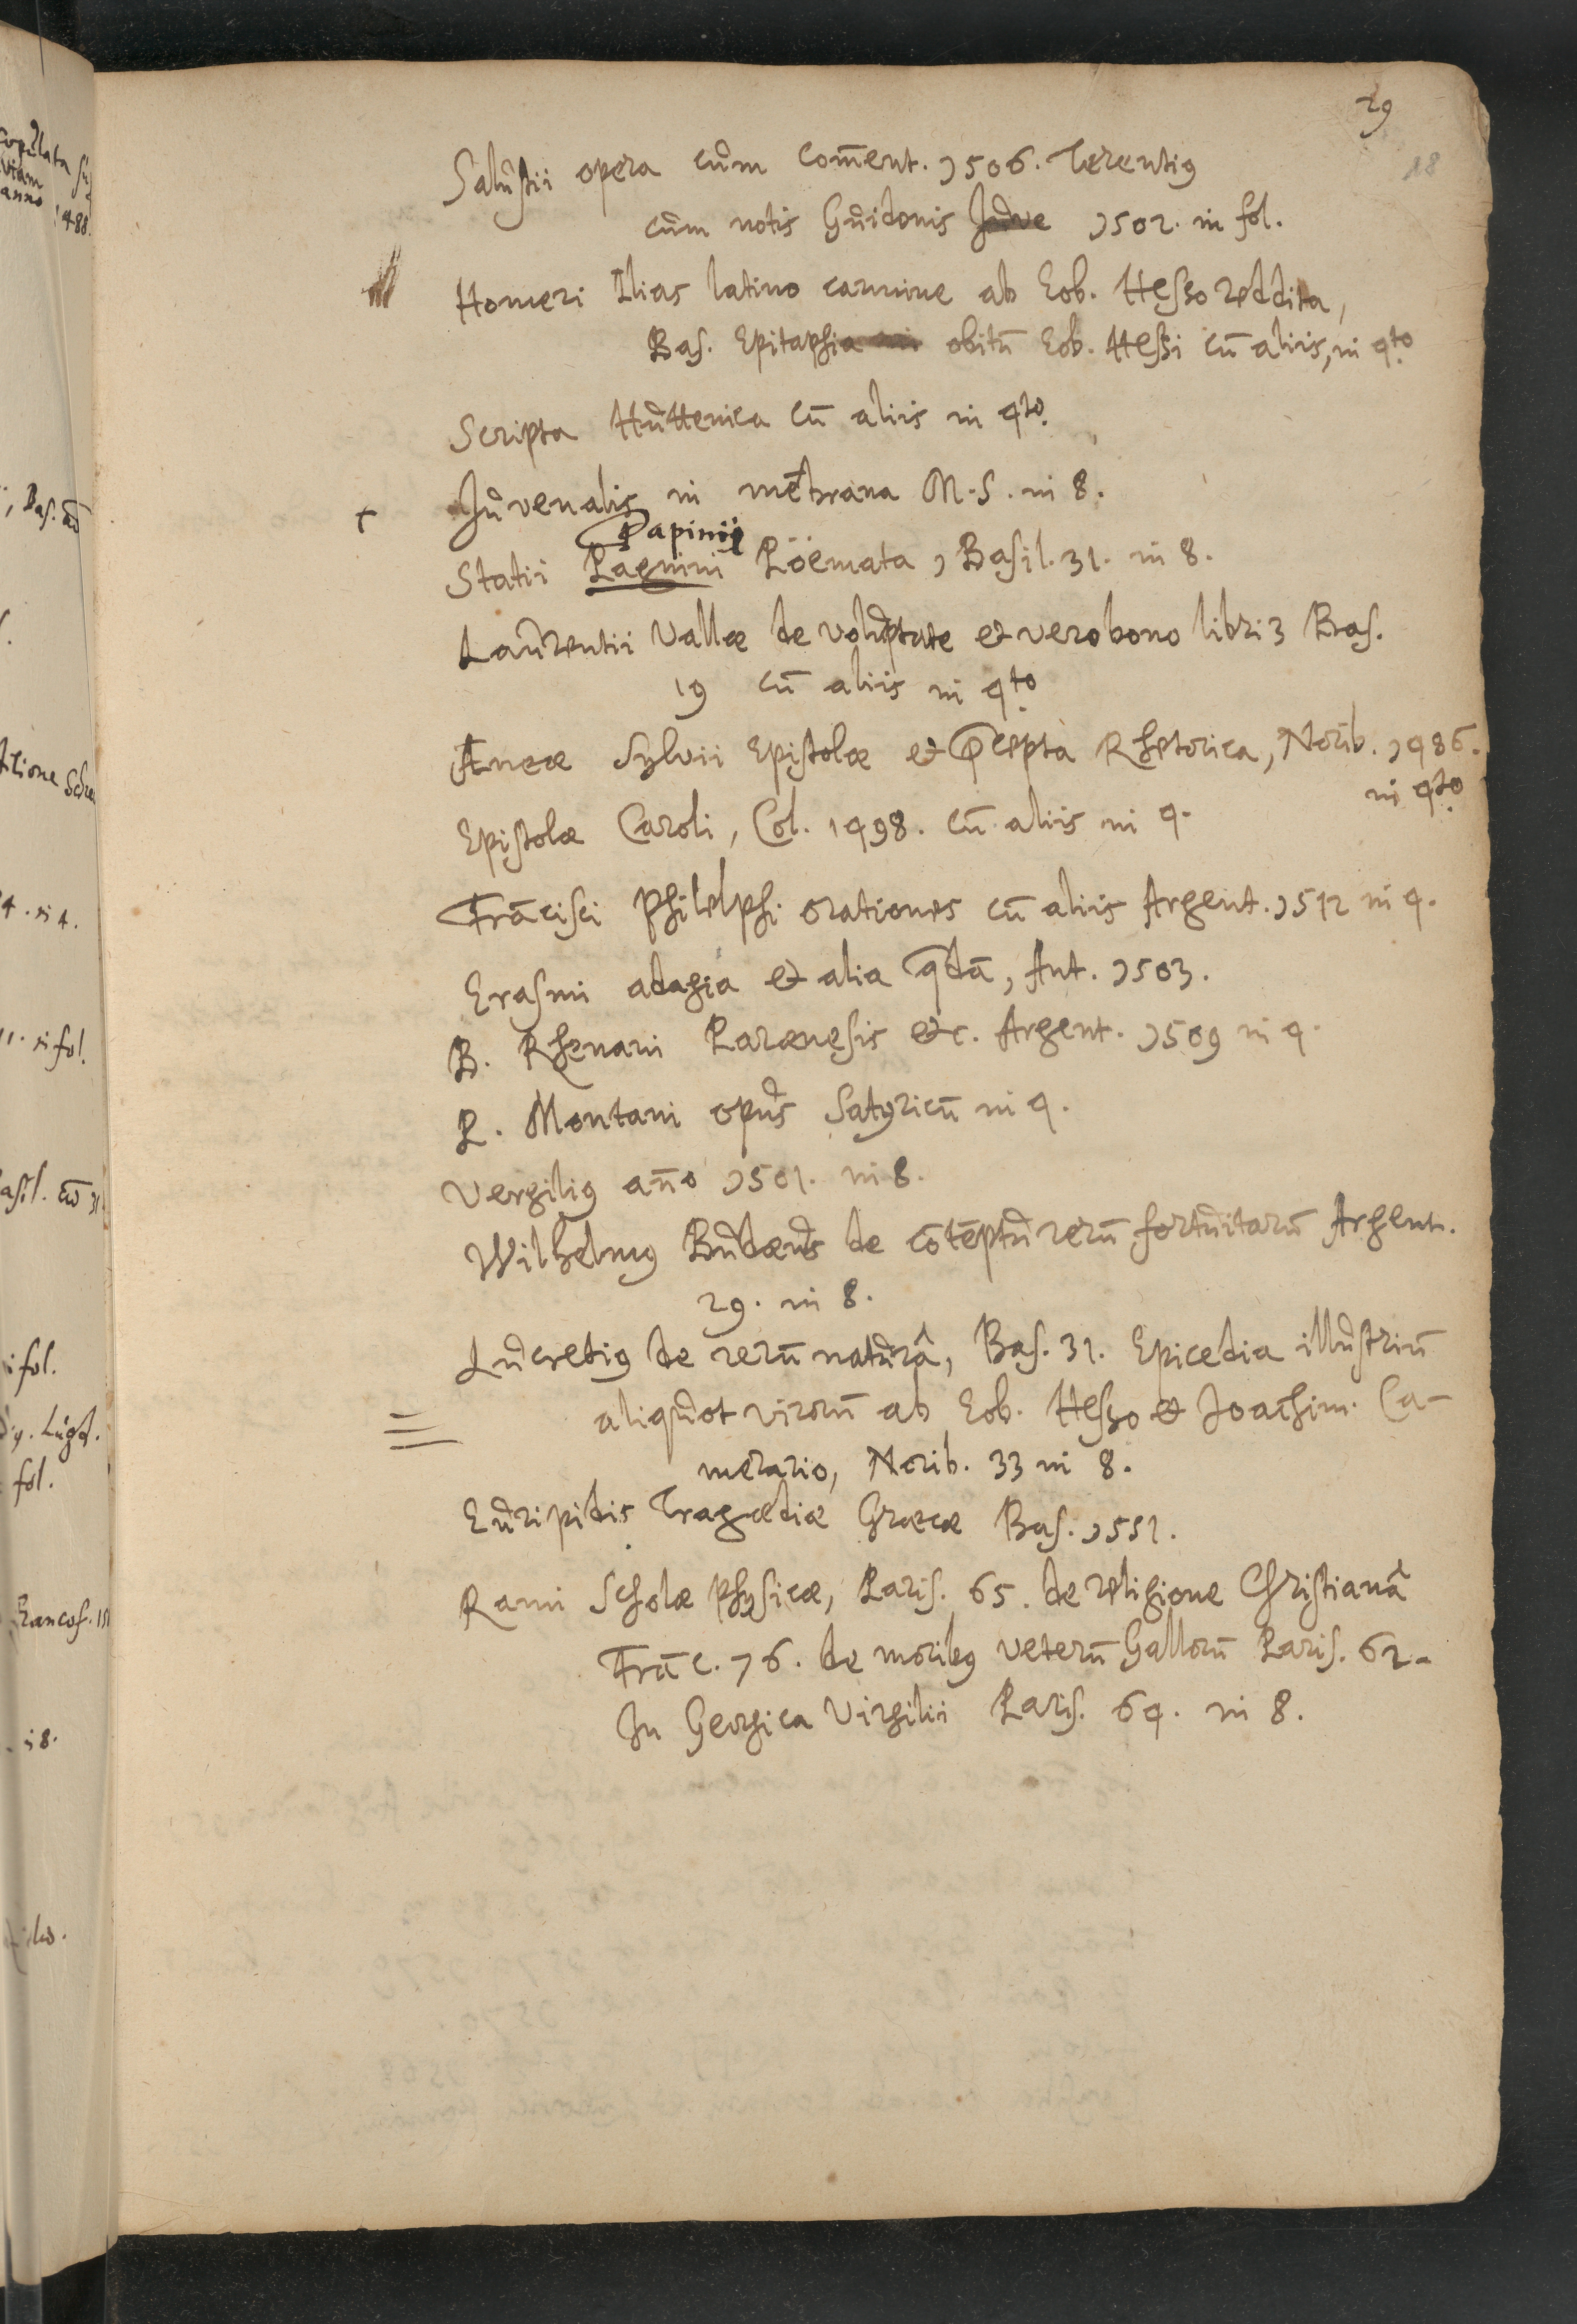 29
18
Salustii opera cum com̄ent. 1506. Terentiꝰ
cum notis Guidonis Juve 1502. in fol.
Homeri Ilias latino carmine ab Eob. Hesso reddita,
Bas. Epitaphia obitū Eob. Hessi cū aliis, in 4to
Scripta Huttenica cū aliis in 4to.
+ Juvenalis in mēbrana M.S. in 8.
Papinii
Statii Pagnini Pöemata, Basil. 31. in 8.
Laurentii Vallæ de voluptate et vero bono libri 3 Bas.
19 cū aliis in 4to
Æneæ Sylvii Epistolæ et p̄cepta Rhetorica, Norib. 1486.
in 4to
Epistolæ Caroli, Col. 1498. cū aliis in 4.
Frācisci Philelphi orationes cū aliis Argent. 1512 in 4.
Erasmi adagia et alia q̄dā, Ant. 1503.
B. Rhenani Parænesis etc. Argent. 1509 in 4.
P. Montani opus Satyricū in 4.
Vergiliꝰ an̄o 1501. in 8.
Wilhelmꝰ Budæus de cōtēptu rerū fortuitarū Argent.
29. in 8.
Lucretiꝰ de rerū naturâ, Bas. 31. Epicedia illustriū
aliquot virorū ab Eob. Hesso et Joachim. Ca-
merario, Norib. 33 in 8.
Euripidis Tragœdiæ Græcæ Bas. 1551.
Rami Scholæ Physicæ, Paris. 65. de religione Christianâ
Frāc. 76. de moribꝰ veterū Gallorū Paris. 62.
In Georgica Virgilii Paris. 64. in 8.